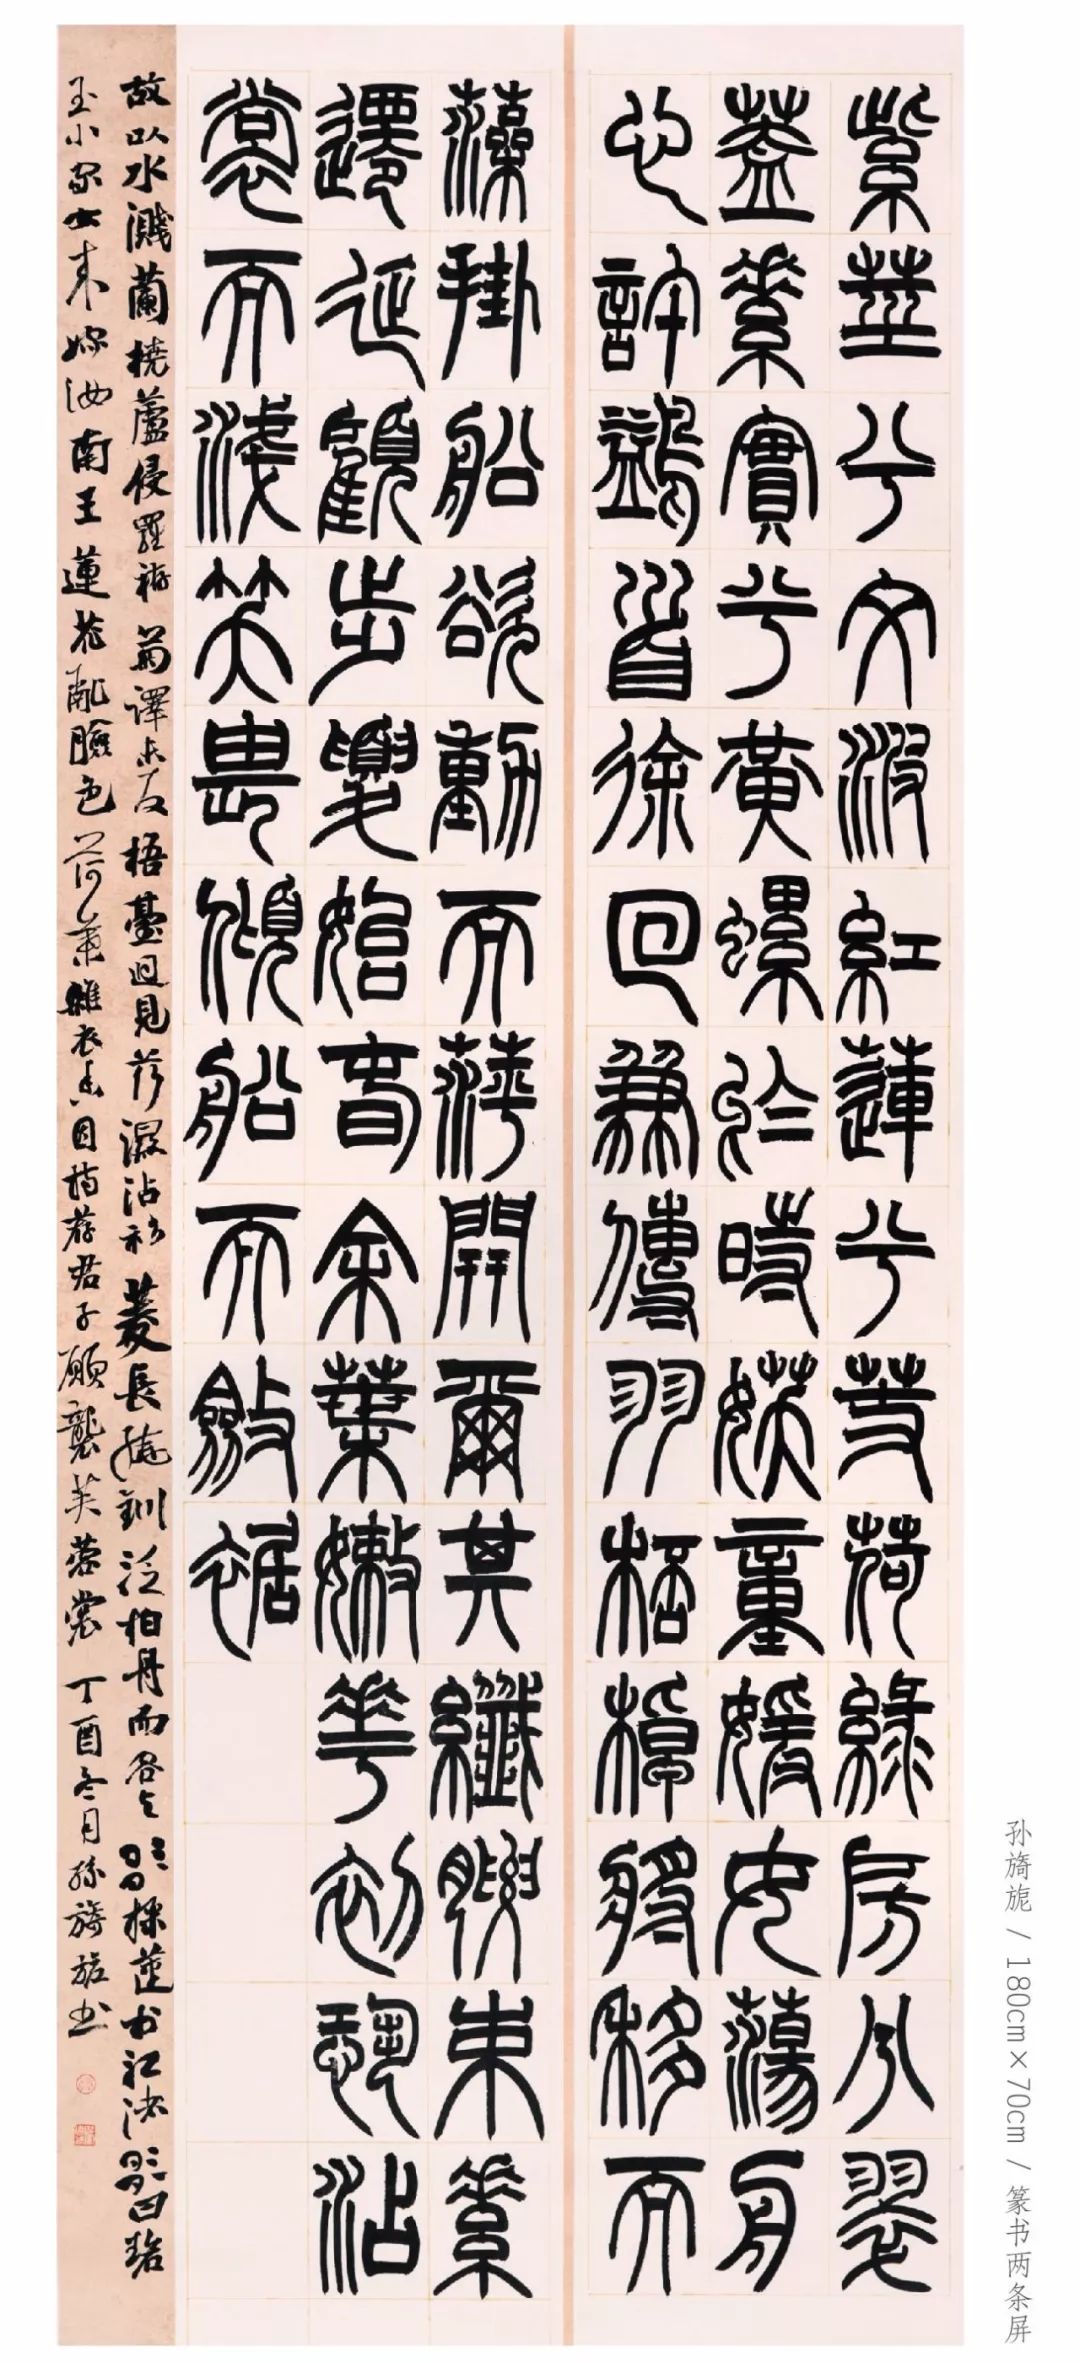 紫莖兮文波紅蓮兮芰荷綠房兮翠
蓋素實兮黃螺於時妖童媛女蕩舟
心許鷁首徐回兼傳羽桮棹將移而
藻掛船欲動而萍開爾其纖腰束素
遷延顧步夏始春余葉嫩華初恐沾
裳而淺笑畏傾船而斂裾
故以水濺蘭橈蘆侵羅袸菊澤未反梧臺迥見荇濕沾衫菱長繞釧泛柏舟而容與歌採蓮於江渚歌曰碧
玉小家女來嫁汝南王蓮花亂臉色荷葉雜衣香因持荐君子願襲芙蓉裳 丁酉冬月孫旖旎書
孙旖旎 / 180cm×70cm / 篆书两条屏